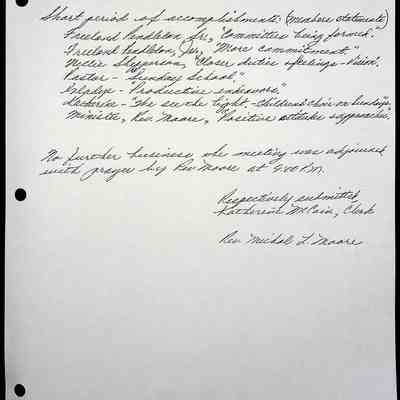 Short period of accomplishments (members statements)
Freeland Pendleton, Sr., "Committees being formed."
Freeland Pendleton, Jr., "More commitment."
Nettie Shepperson, "Closer duties & feelings - Vision."
Pastor - "Sunday School."
Gladys - "Productive endeavors."
Katherine - "We see the light, Children's choir on Sundays,
Minister, Rev. Moore, "Positive attitudes & approaches.
No further business, the meeting was adjourned
with prayer by Rev. Moore at 9:00 P.M.
Respectively submitted
Katherine McCain, Clerk
Rev. Michal L. Moore